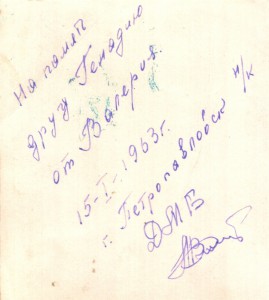 На память
другу Генадию
от Валерия.
15-I-1963г.
г. Петропавловск н/к
ДМБ